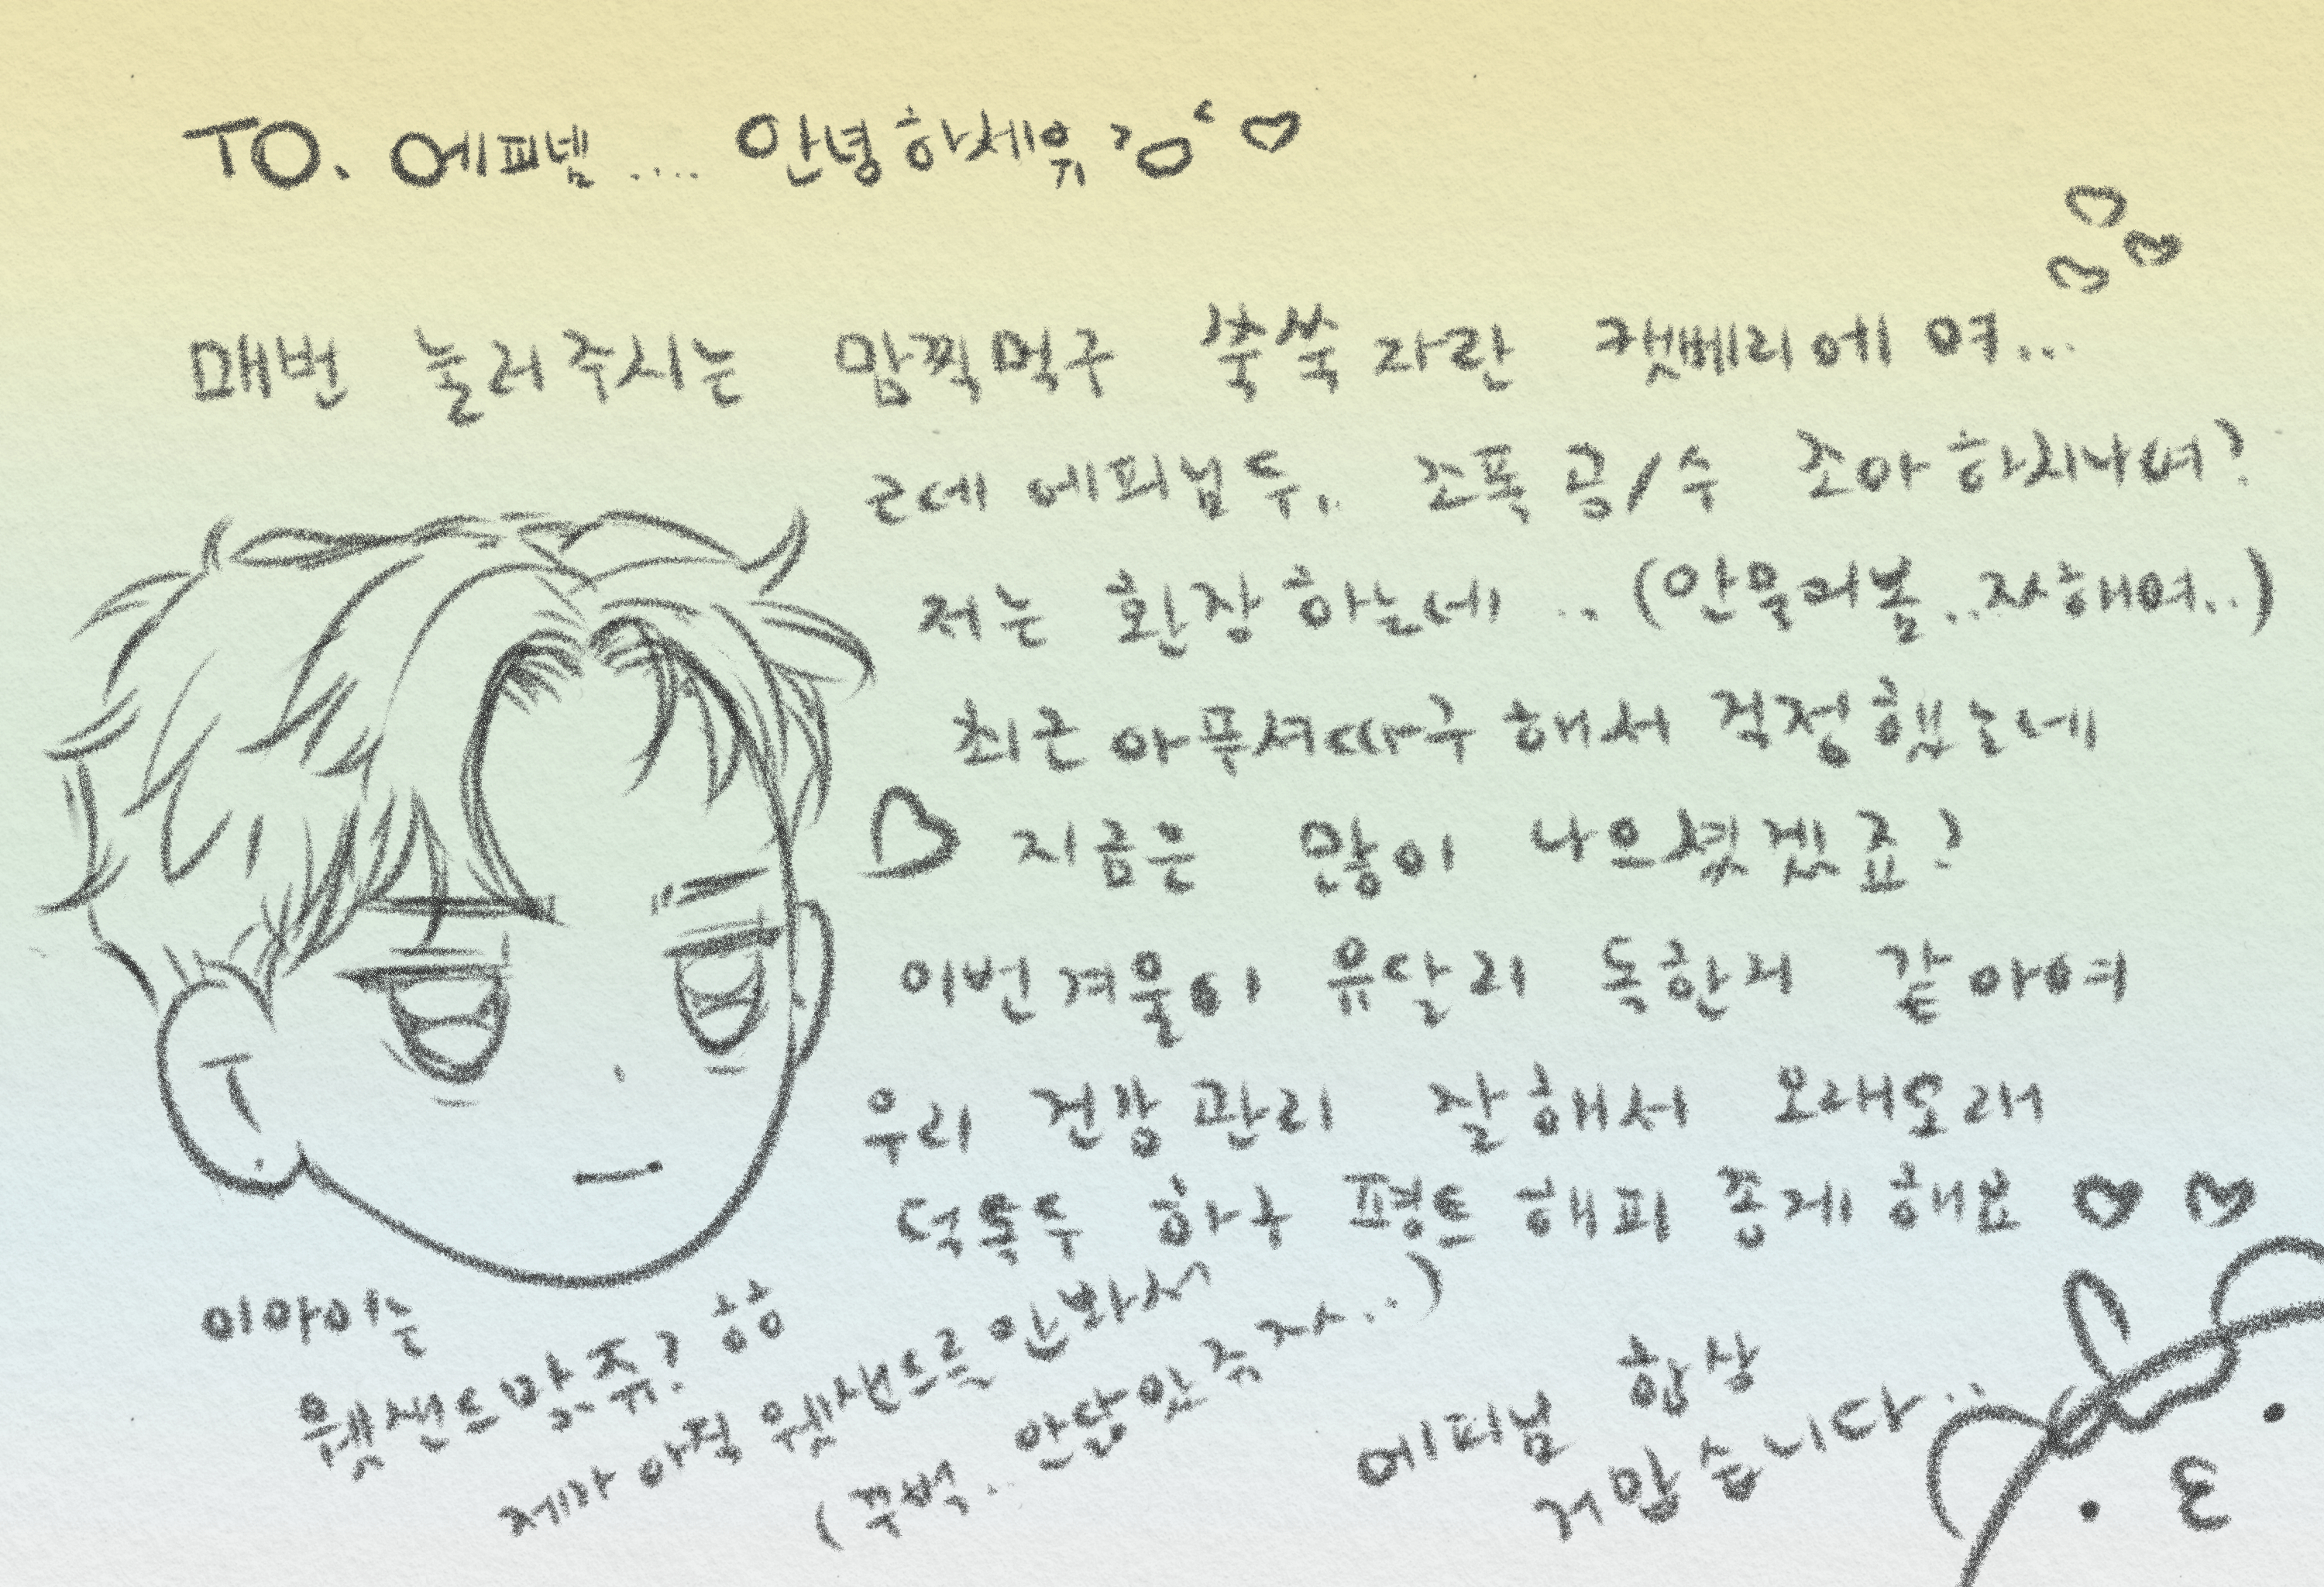 TO. 에피넴.... 안녕하세위 >ㅇ< ♡
매번 눌러주시는 맘찍먹구 쑥쑥자란 캣베리에여...
근데 에피님두.. 조폭공/수 조아하시나여?
저는 환장하는데.. (안물러봄..자해여..)
최근 아푸셔따구 해서 걱정했는데
지금은 많이 나으셨겠죠?
이번겨울이 유달리 독한거 같아여
우리 건강관리 잘해서 오래오래
덕톡두 하구 펑트 해피 종게해요 ♡ ♡
이아이는
웻샌드맞쥬? 핳핳
제가 아직 웻샌드를 안봐서
(꾸벅.. 안닮았쥬자..)
에피님 항상
거맙습니다..